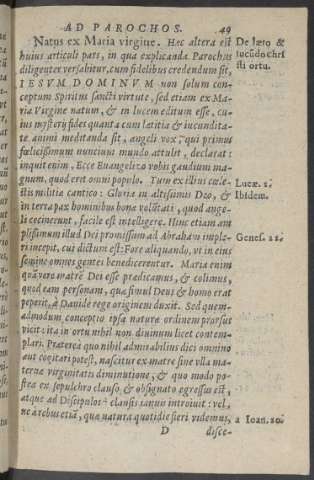 AD PAROCHOS. 49
Natus ex Maria virgine. Hæc altera est
huius articuli pars, in qua explicanda Parochus
diligenter versabitur, cum fidelibus credendum sit,
IESVM DOMINVM non solum con-
ceptum Spiritus sancti virtute, sed etiam ex Ma-
ria Virgine natum, & in lucem editum esse, cu-
ius mysterij fides quanta cum lætitia & iucundita-
te animi meditanda sit, angeli vox, qui primus
fœlicissimum nuncium mundo attulit, declarat:
inquit enim, Ecce Euangelizo vobis gaudium ma-
gnum, quod erit omni populo. Tum ex illius cœle-
stis militiæ cantico: Gloria in altissimis Deo, &
in terra pax hominibus bonæ volūtati, quod ange-
li cecinerunt, facile est intelligere. Hinc etiam am
plissimum illud Dei promissum ad Abraham imple-
ri incepit, cui dictum est: Fore aliquando, vt in eius
semine omnes gentes benedicerentur. Maria enim
quā vere matrē Dei esse prædicamus, & colimus,
quod eam personam, quæ simul Deus & homo erat
peperit, à Dauide rege originem duxit. Sed quem-
admodum conceptio ipsa naturæ ordinem prorsus
vicit: ita in ortu nihil non diuinum licet contem-
plari. Præterea quo nihil admirabilius dici omnino
aut cogitari potest, nascitur ex matre sine vlla ma-
ternæ virginitatis diminutione, & quo modo po-
stea ex sepulchro clauso, & obsignato egressus est,
atque ad Discipulos a clausis ianuis introiuit: vel,
ne à rebus etiā, quæ natura quotidie fieri videmus,
D disce-
De læto &
iucūdo chri
sti ortu.
Lucæ. 2.
Ibidem.
Genes. 22.
a Ioan. 20.